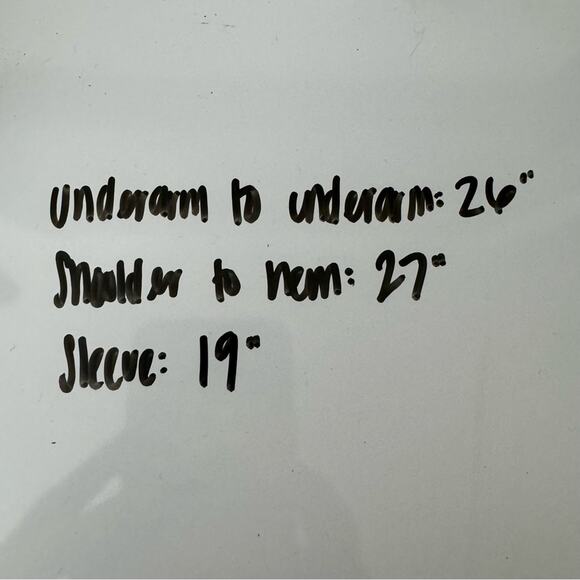 underarm to underarm: 26"
Shoulder to hem: 27"
Sleeve: 19"